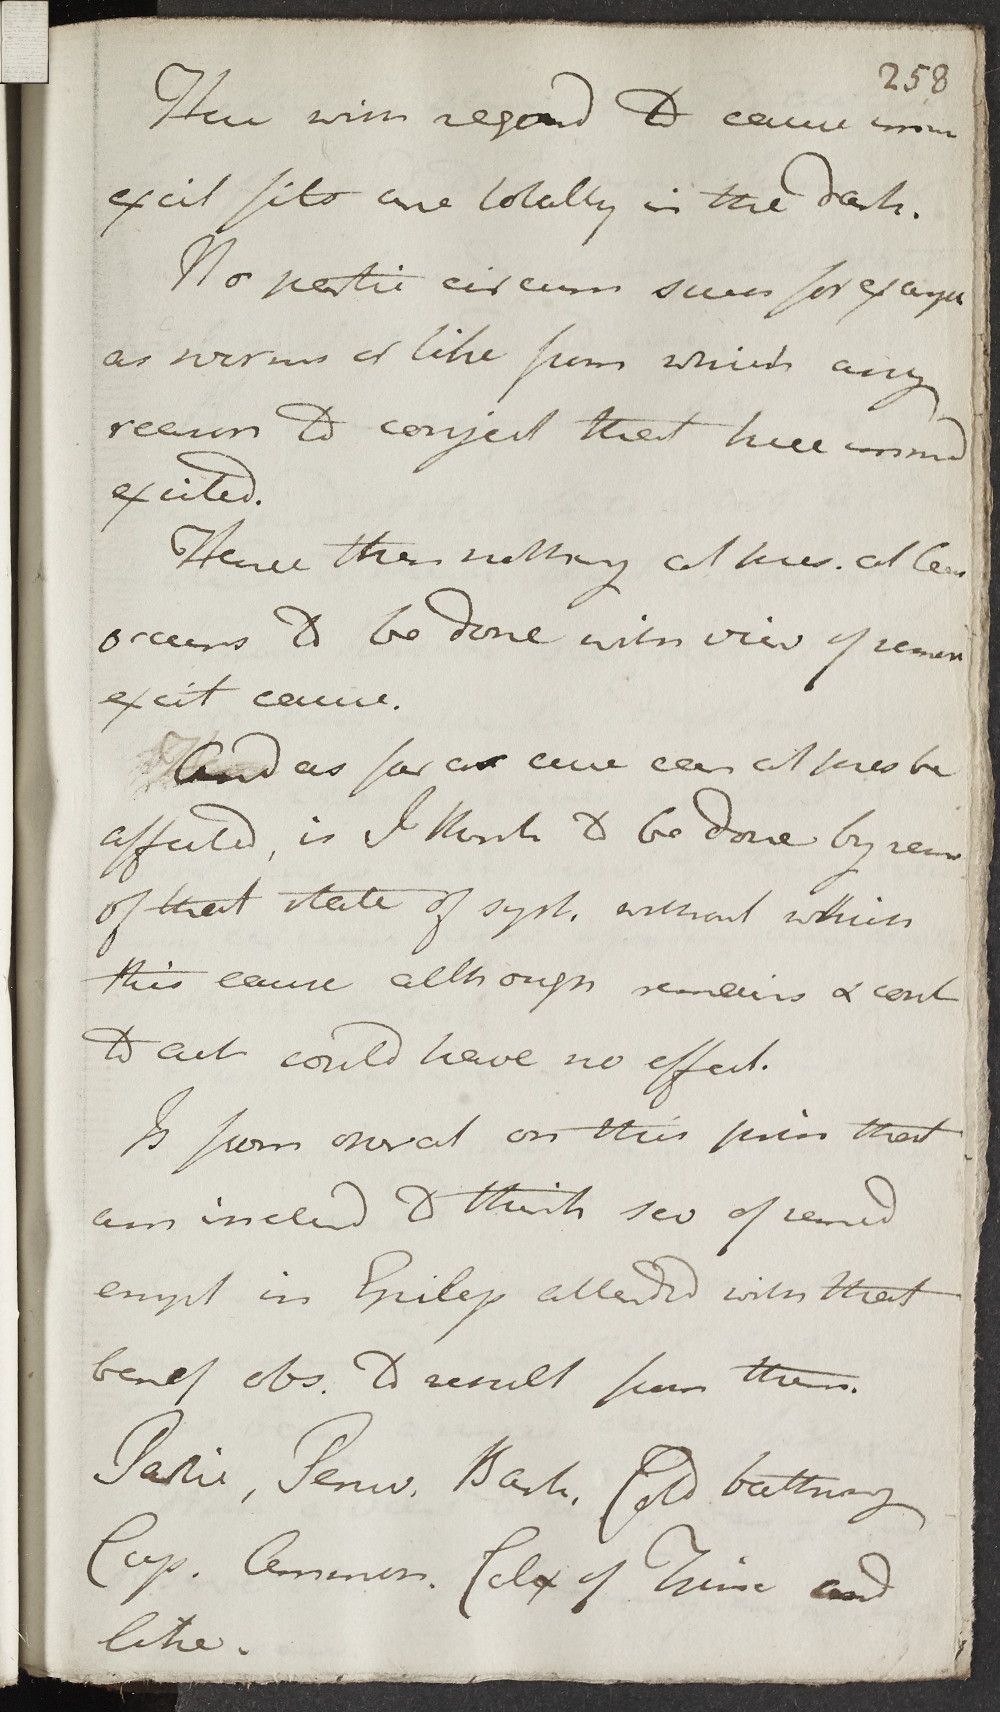 258
Here with regard to cause imm
excit fits are totally in the dark.
No partic circum seems for examp
as worms or like from which any
reason to conject that have immed
excited.
Hence then nothing at pres. at leas
occurs to be done with view of remov
excit cause.
And as far as cure can at pres be
affected, is I think to be done by rem
of that state of syst. without which
this cause although remains & cont
to act could have no effect.
Is from operat on this prin that
am inclend to think sev of remed
empl in Epilep attended with that
benef obs. to result from them.
Partic, Peruv. Bark. Cold bathing
Cup. Ammon. Calx of Zinc and
like.